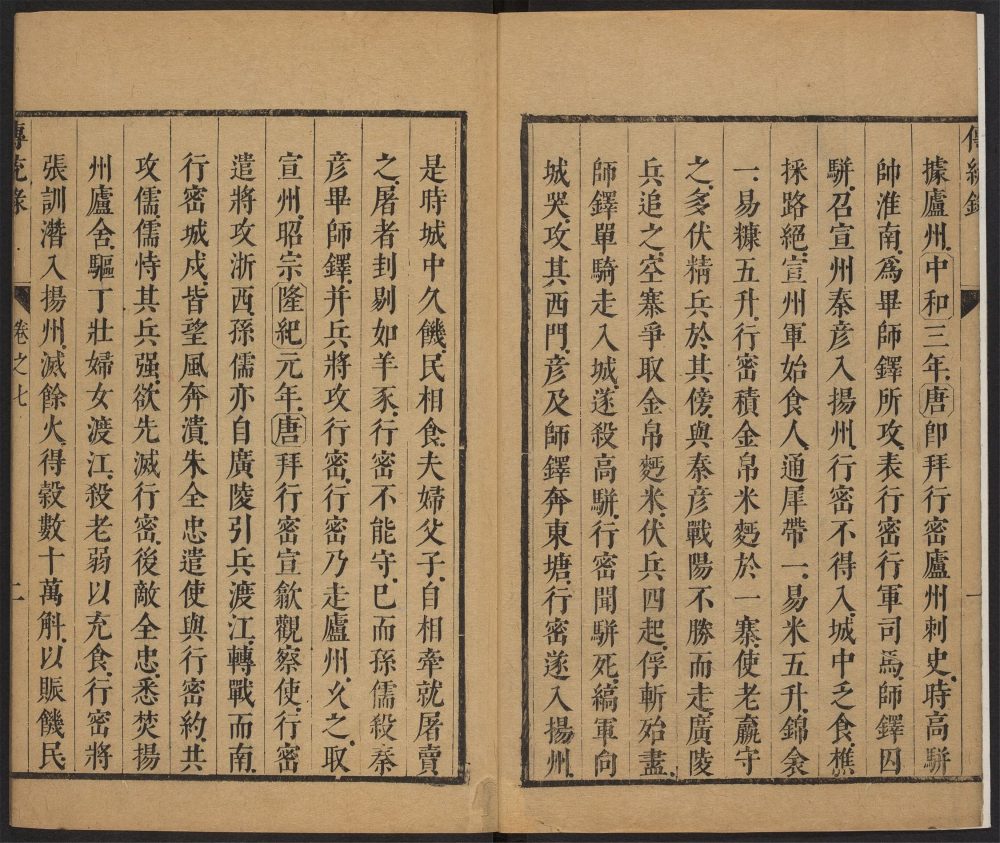 據廬州中和三年唐卽拜行密廬州刺史時高駢
帥淮南爲畢師鐸所攻表行密行軍司馬師鐸囚
駢召宣州秦彥入揚州行密不得入城中乏食樵
採路絕宣州軍始食人通犀帶一易米五升錦衾
一易糠五升行密積金帛米麪於一寨使老羸守
之多伏精兵於其傍與秦彥戰陽不勝而走廣陵
兵追之空寨爭取金帛麪米伏兵四起俘斬殆盡
師鐸單騎走入城遂殺高駢行密聞駢死縞軍向
城哭攻其西門彥及師鐸奔東塘行密遂入揚州
一
是時城中久饑民相食夫婦父子自相牽就屠賣
之屠者刲剔如羊豕行密不能守巳而孫儒殺秦
彥畢師鐸并兵將攻行密行密乃走廬州久之取
宣州昭宗隆紀元年唐拜行密宣歙觀察使行密
遣將攻浙西孫儒亦自廣陵引兵渡江轉戰而南
行密城戍皆望風奔潰朱全忠遣使與行密約共
攻儒儒恃其兵强欲先滅行密後敵全忠悉焚揚
州廬舍驅丁壯婦女渡江殺老弱以充食行密將
張訓潛入揚州滅餘火得穀數十萬斛以賑饑民
卷之七
二